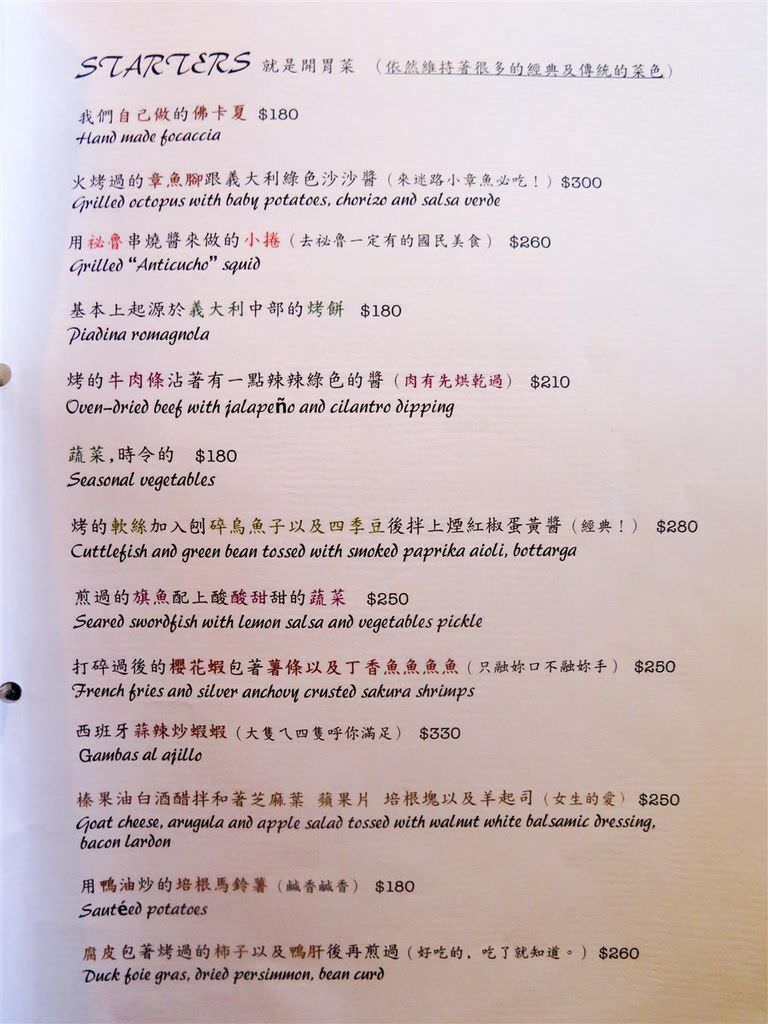 STARTERS 就是開胃菜 （依然維持著很多的經典及傳統的菜色）
我們自己做的佛卡夏 $180
Hand made focaccia
火烤過的章魚腳跟義大利綠色沙沙醬（來迷路小章魚必吃！）$300
Grilled octopus with baby potatoes, chorizo and salsa verde
用祕魯串燒醬來做的小捲（去祕魯一定有的國民美食） $260
Grilled "Anticucho" squid
基本上起源於義大利中部的烤餅 $180
Piadina romagnola
烤的牛肉條沾著有一點辣辣綠色的醬（肉有先烘乾過） $210
Oven-dried beef with jalapeño and cilantro dipping
蔬菜,時令的 $180
Seasonal vegetables
烤的軟絲加入刨碎烏魚子以及四季豆後拌上煙紅椒蛋黃醬（經典！） $280
Cuttlefish and green bean tossed with smoked paprika aioli, bottarga
煎過的旗魚配上酸酸甜甜的蔬菜 $250
Seared swordfish with lemon salsa and vegetables pickle
打碎過後的櫻花蝦包著薯條以及丁香魚魚魚魚（只融妳口不融妳手） $250
French fries and silver anchovy crusted sakura shrimps
西班牙蒜辣炒蝦蝦（大隻ㄟ四隻呼你滿足） $330
Gambas al ajillo
榛果油白酒醋拌和著芝麻葉 蘋果片 培根塊以及羊起司（女生的愛） $250
Goat cheese, arugula and apple salad tossed with walnut white balsamic dressing,
bacon lardon
用鴨油炒的培根馬鈴薯（鹹香鹹香） $180
Sautéed potatoes
腐皮包著烤過的柿子以及鴨肝後再煎過（好吃的，吃了就知道。）$260
Duck foie gras, dried persimmon, bean curd